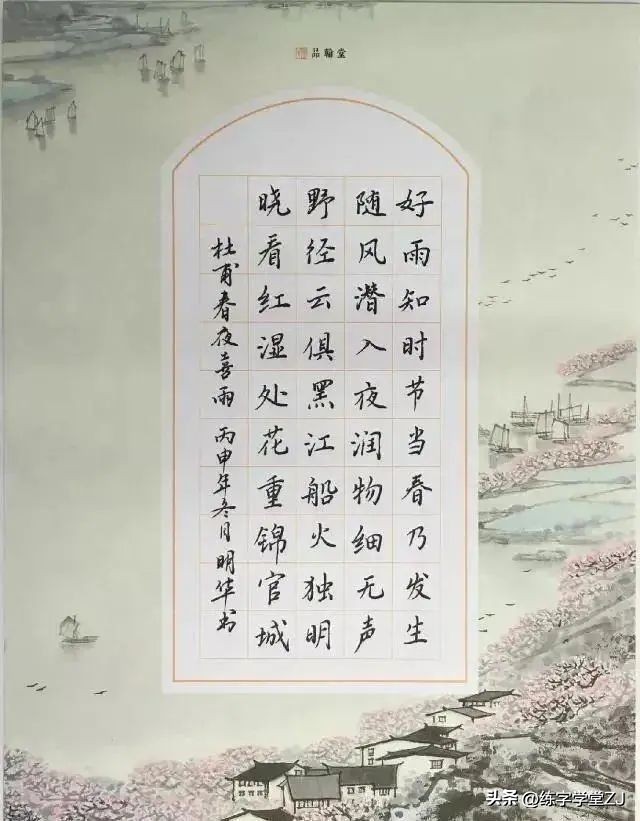 品翰堂
好雨知时节当春乃发生
随风潜入夜润物细无声
野径云俱黑江船火独明
晓看红湿处花重锦官城
杜甫春夜喜雨 丙申年冬月明华书
头条 @练字学堂ZJ